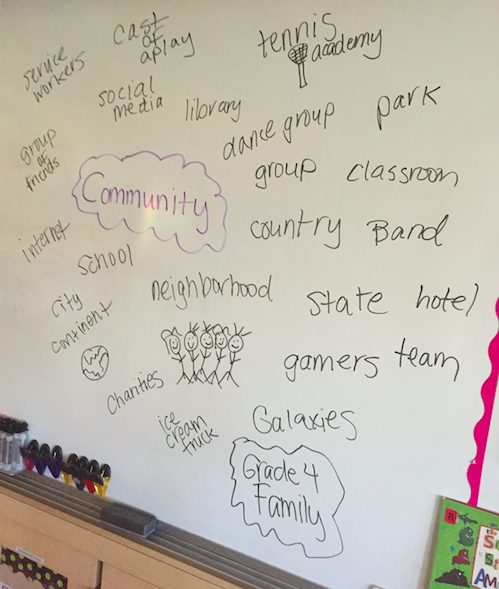 service
workers
cast
of
a play
tennis
academy
social
media
library
park
group
of
friends
dance group
group
classroom
Community
country
Band
internet
school
neighborhood
state
hotel
city
continent
gamers
team
Charities
ice
cream
truck
Galaxies
Grade 4
Family